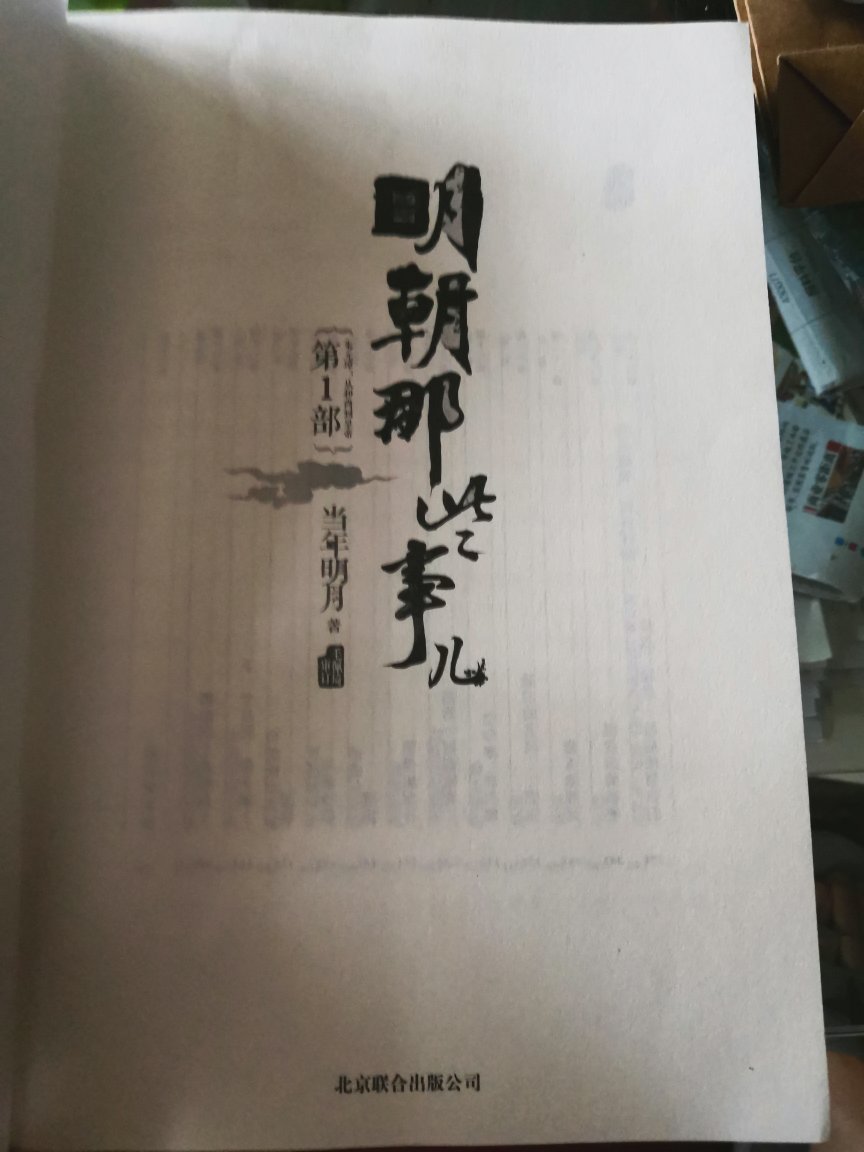 明朝那些事儿
第1部
当年明月 著
北京联合出版公司